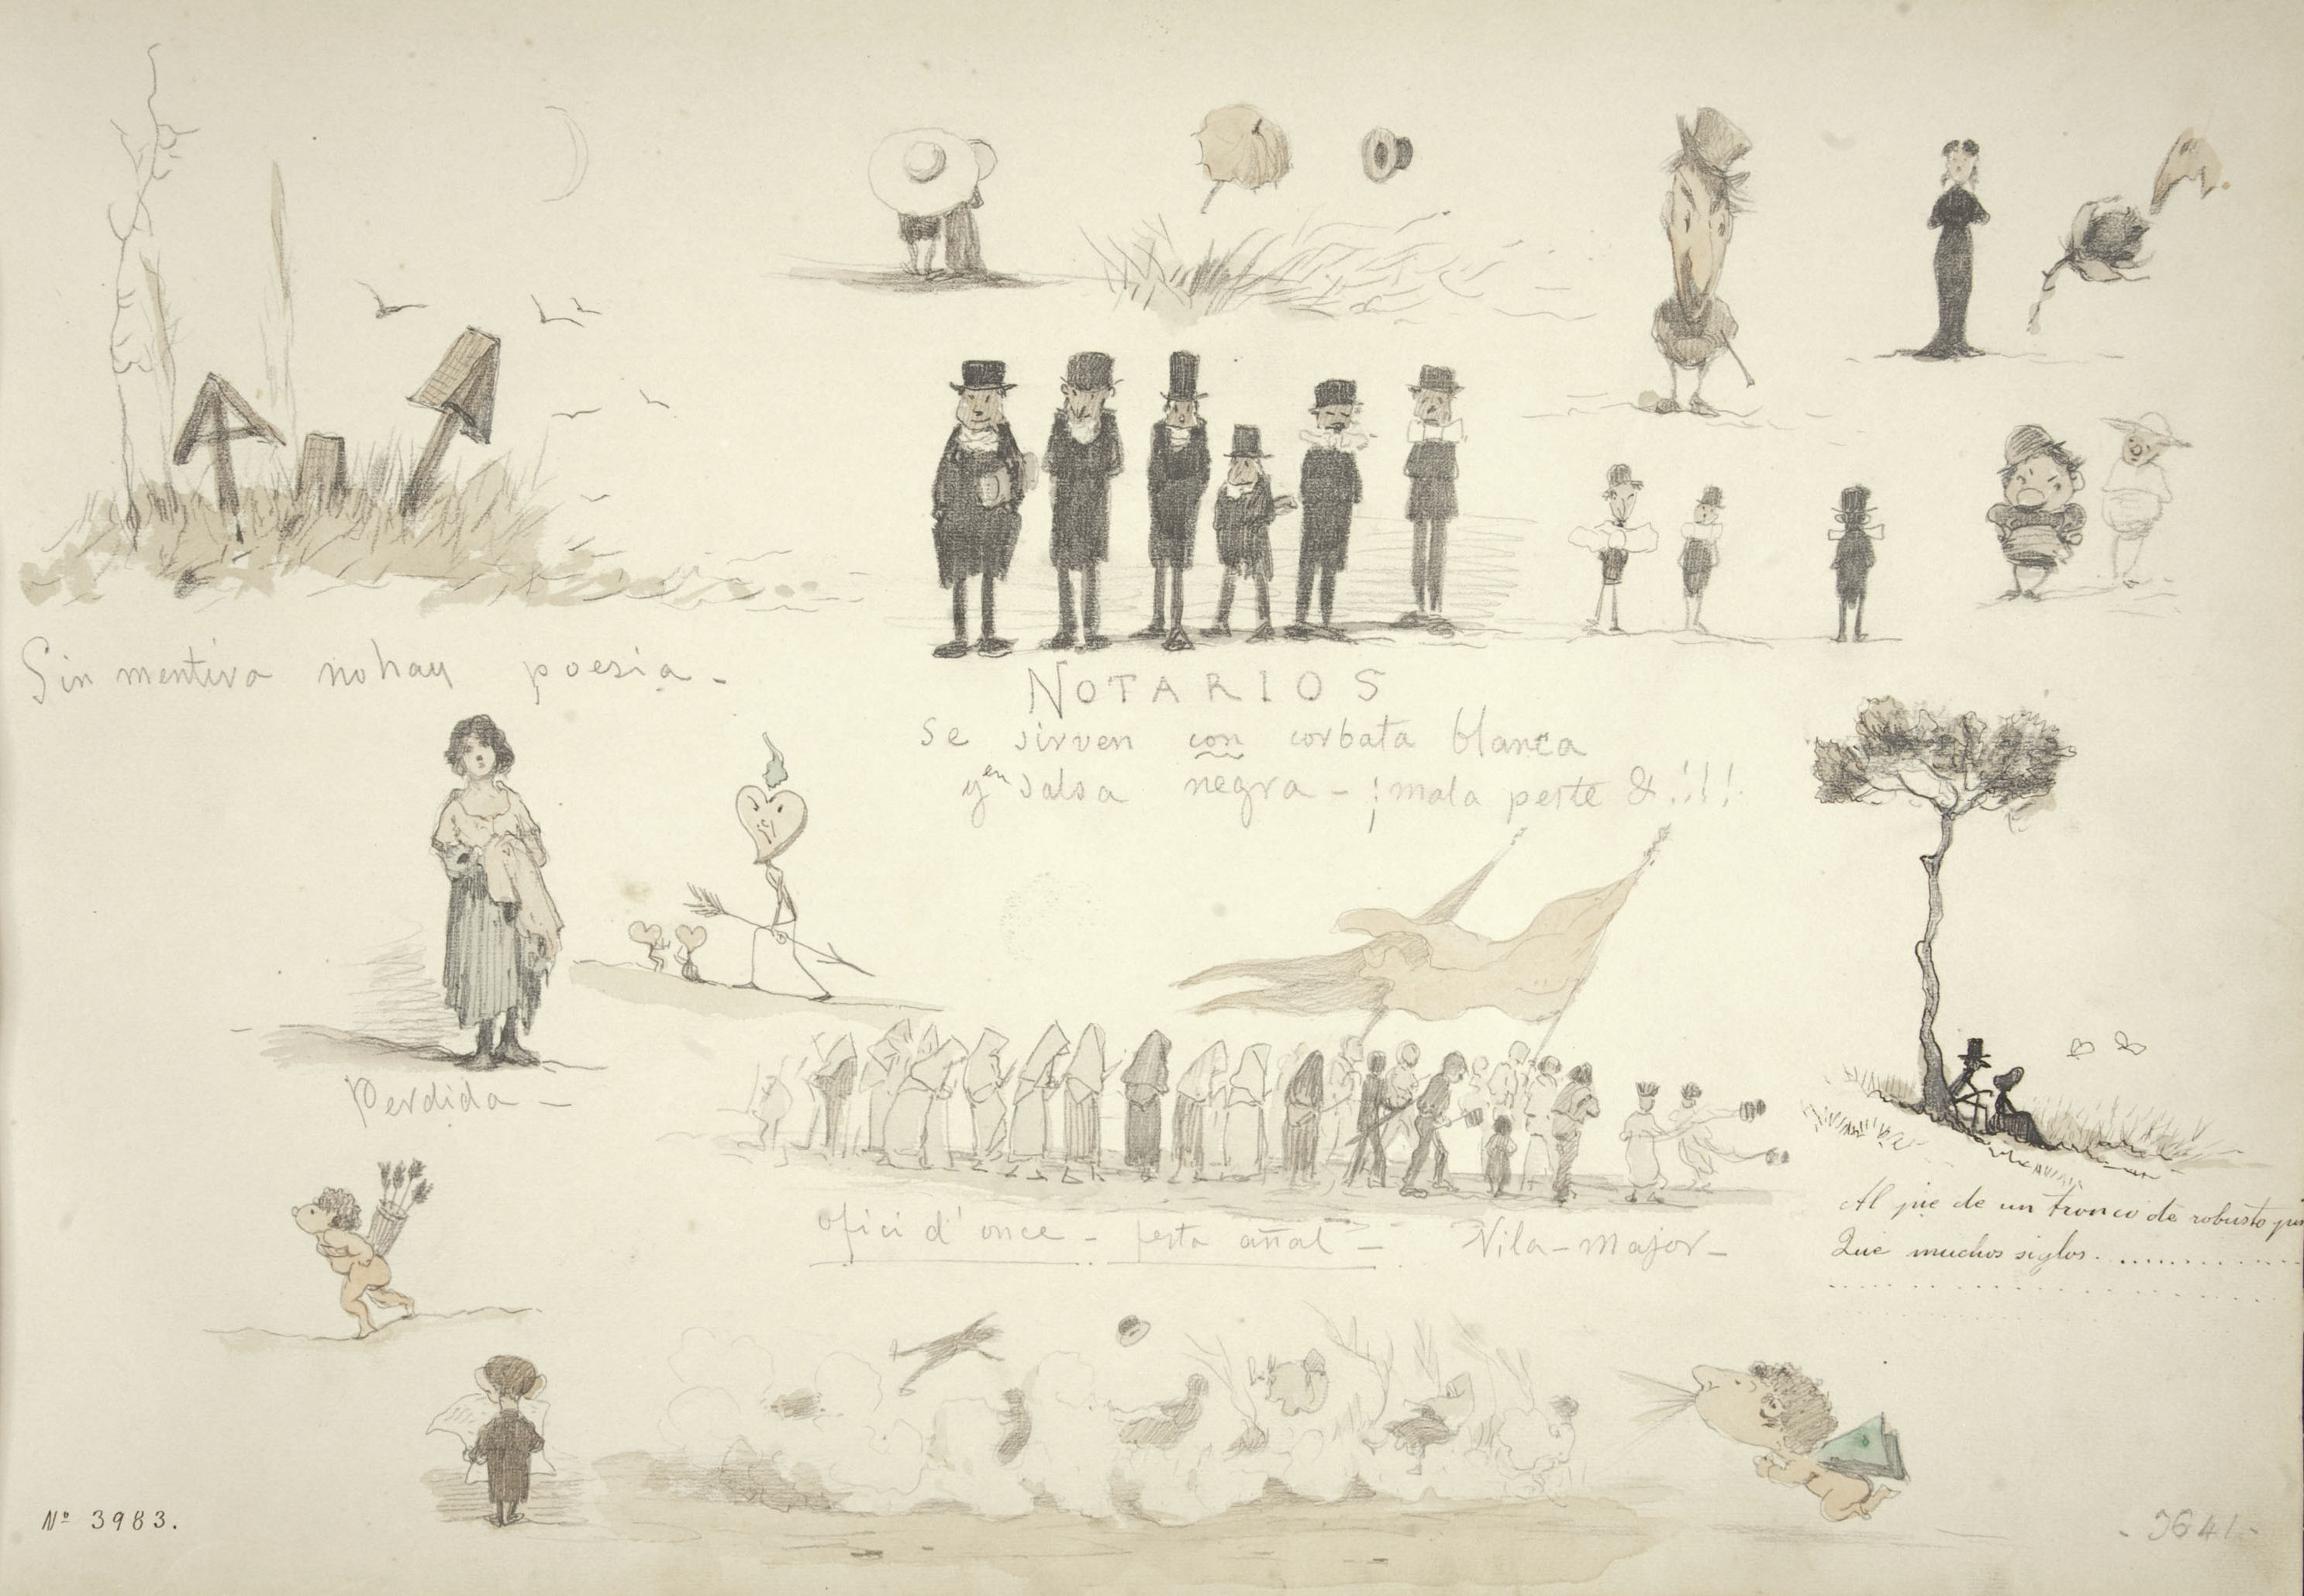 Sin mentira no hay poesia -
NOTARIOS
se sirven con corbata blanca
y en salsa negra - ¡mala peste &!!!
Perdida -
ofici d' once - festa añal - Vila-Major -
Al pie de un tronco de robusto
Que muchos siglos..............
Nº 3983.